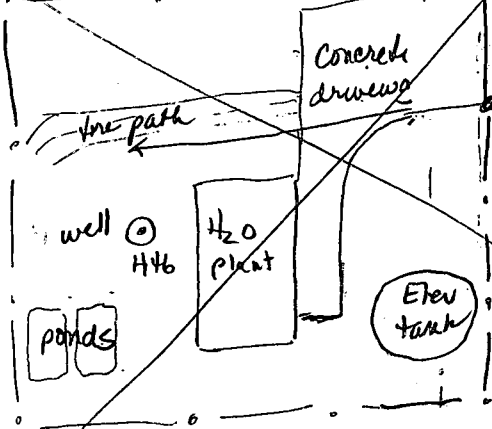 Concrete
driveway
tire path
well
H46
H2O
plant
Elev
tank
ponds